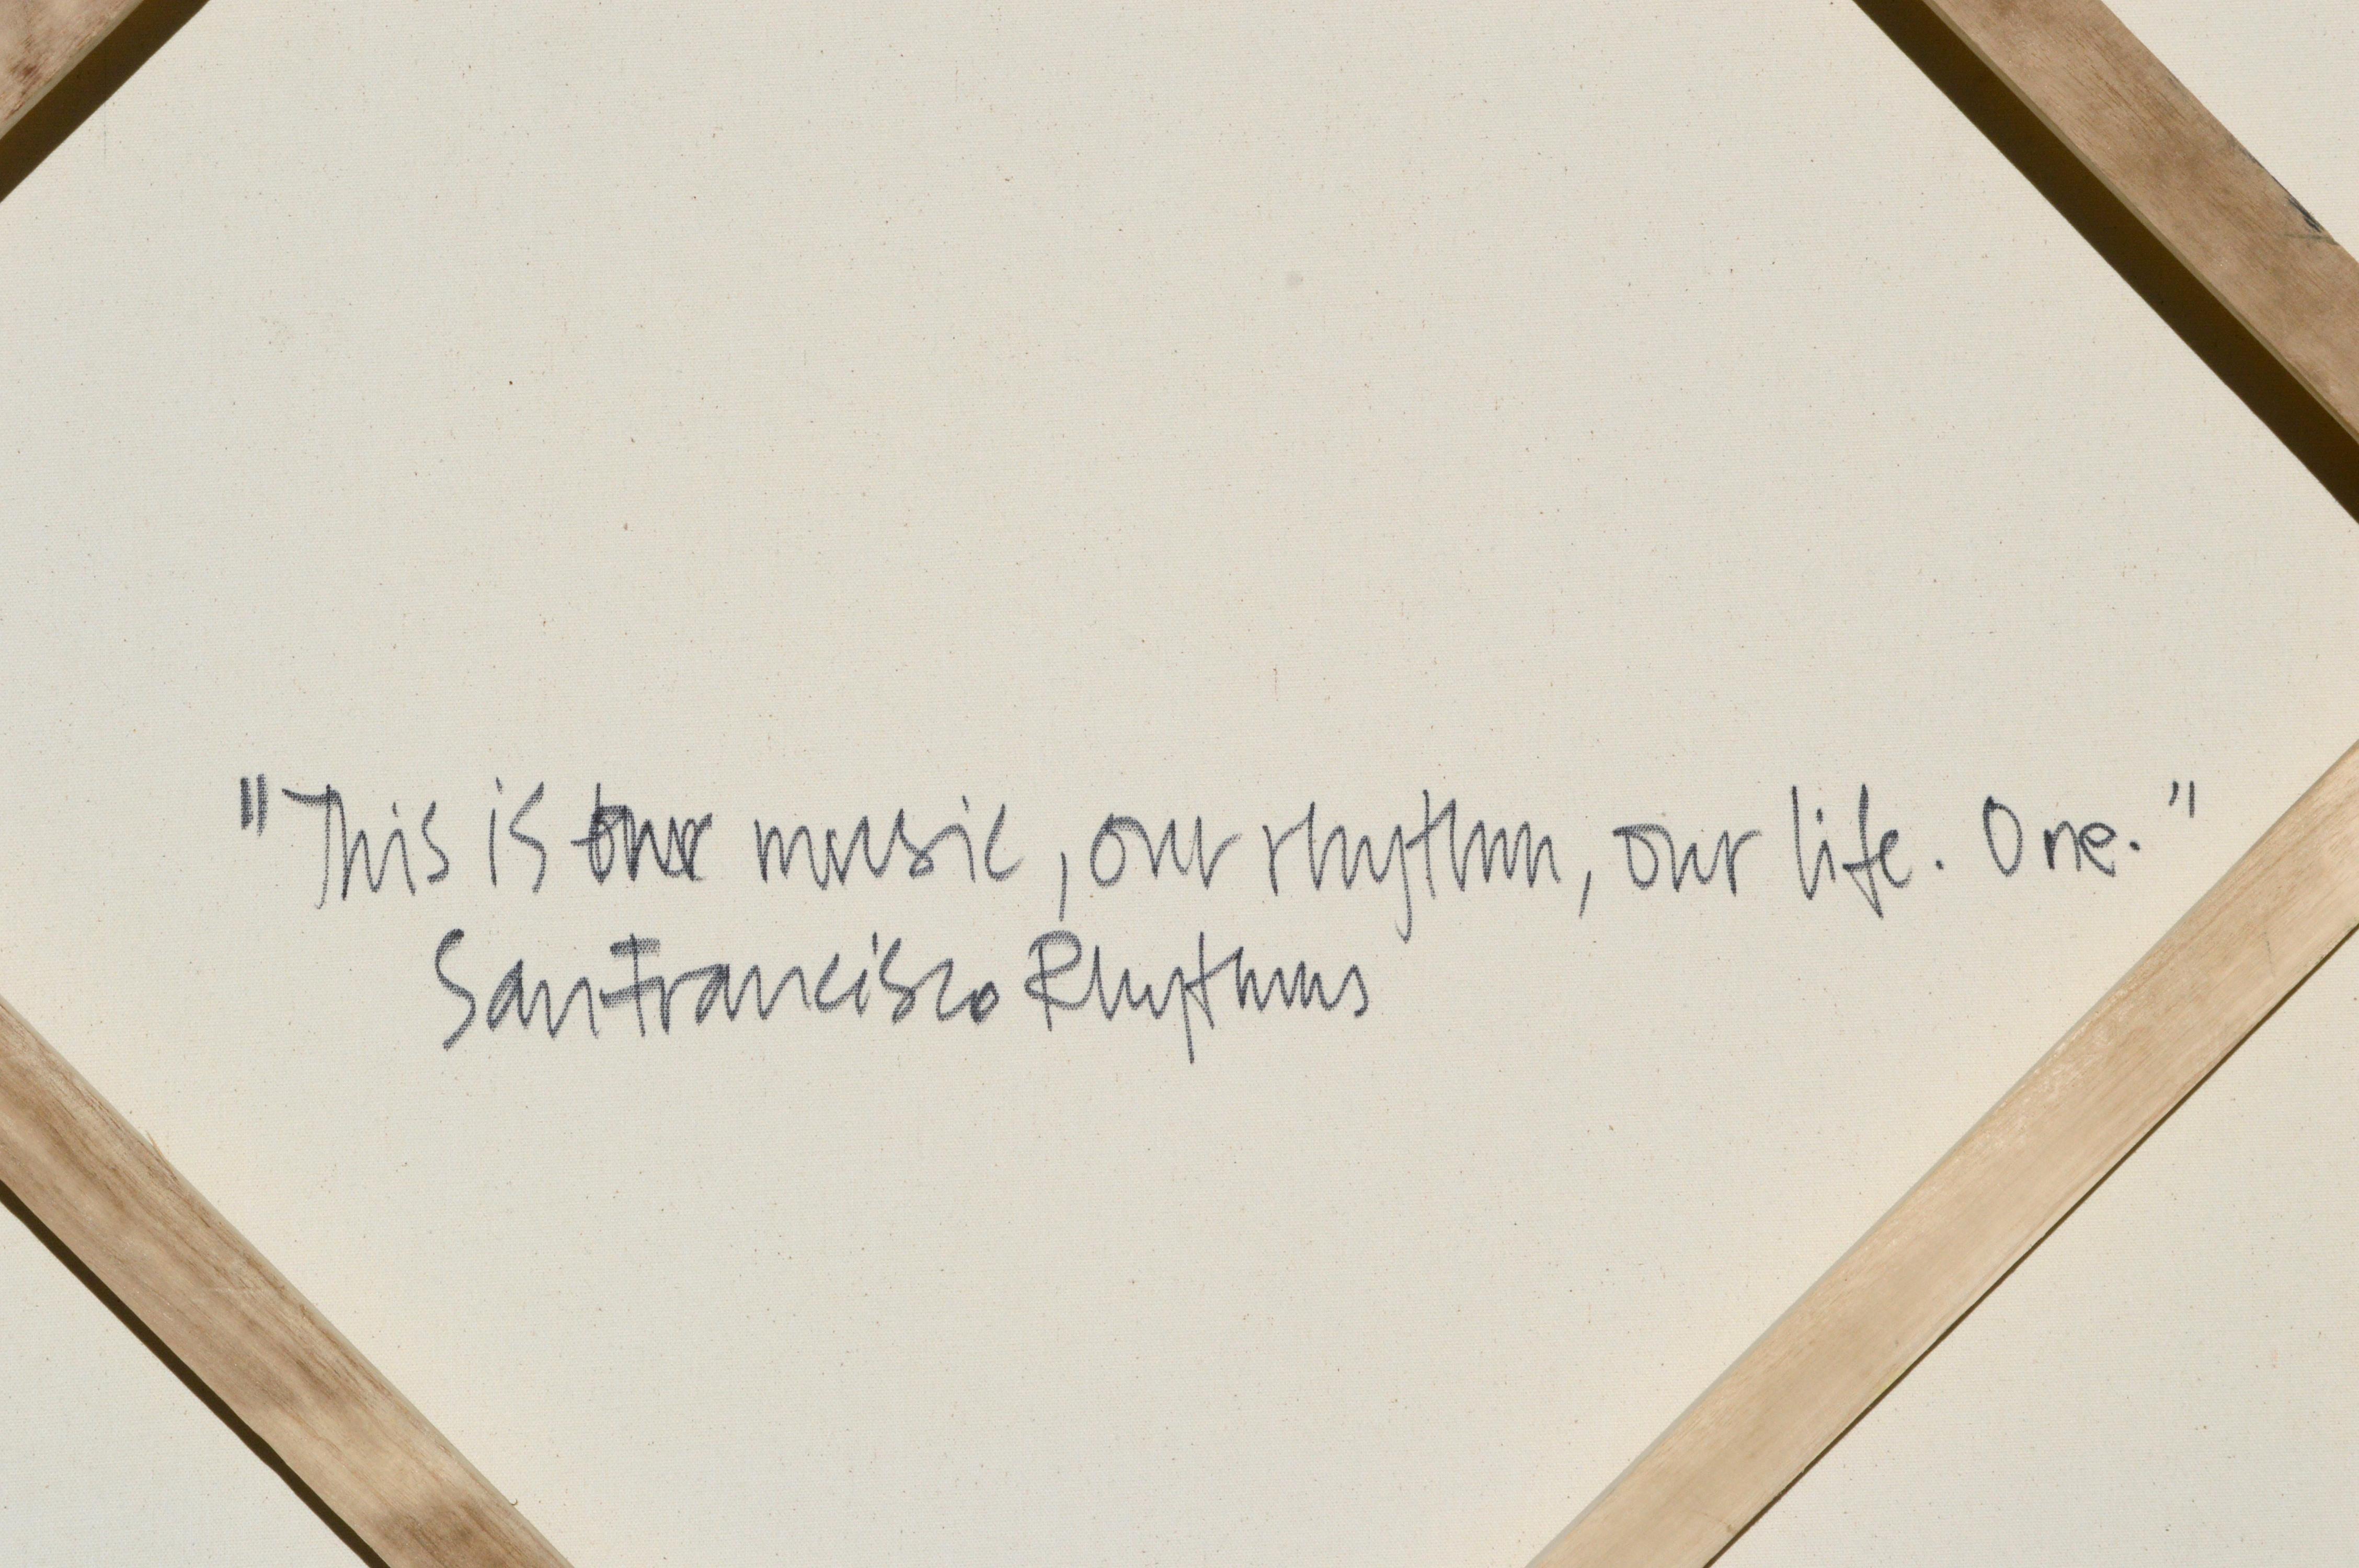 "This is our music, our rhythm, our life. One."
San Francisco Rhythms